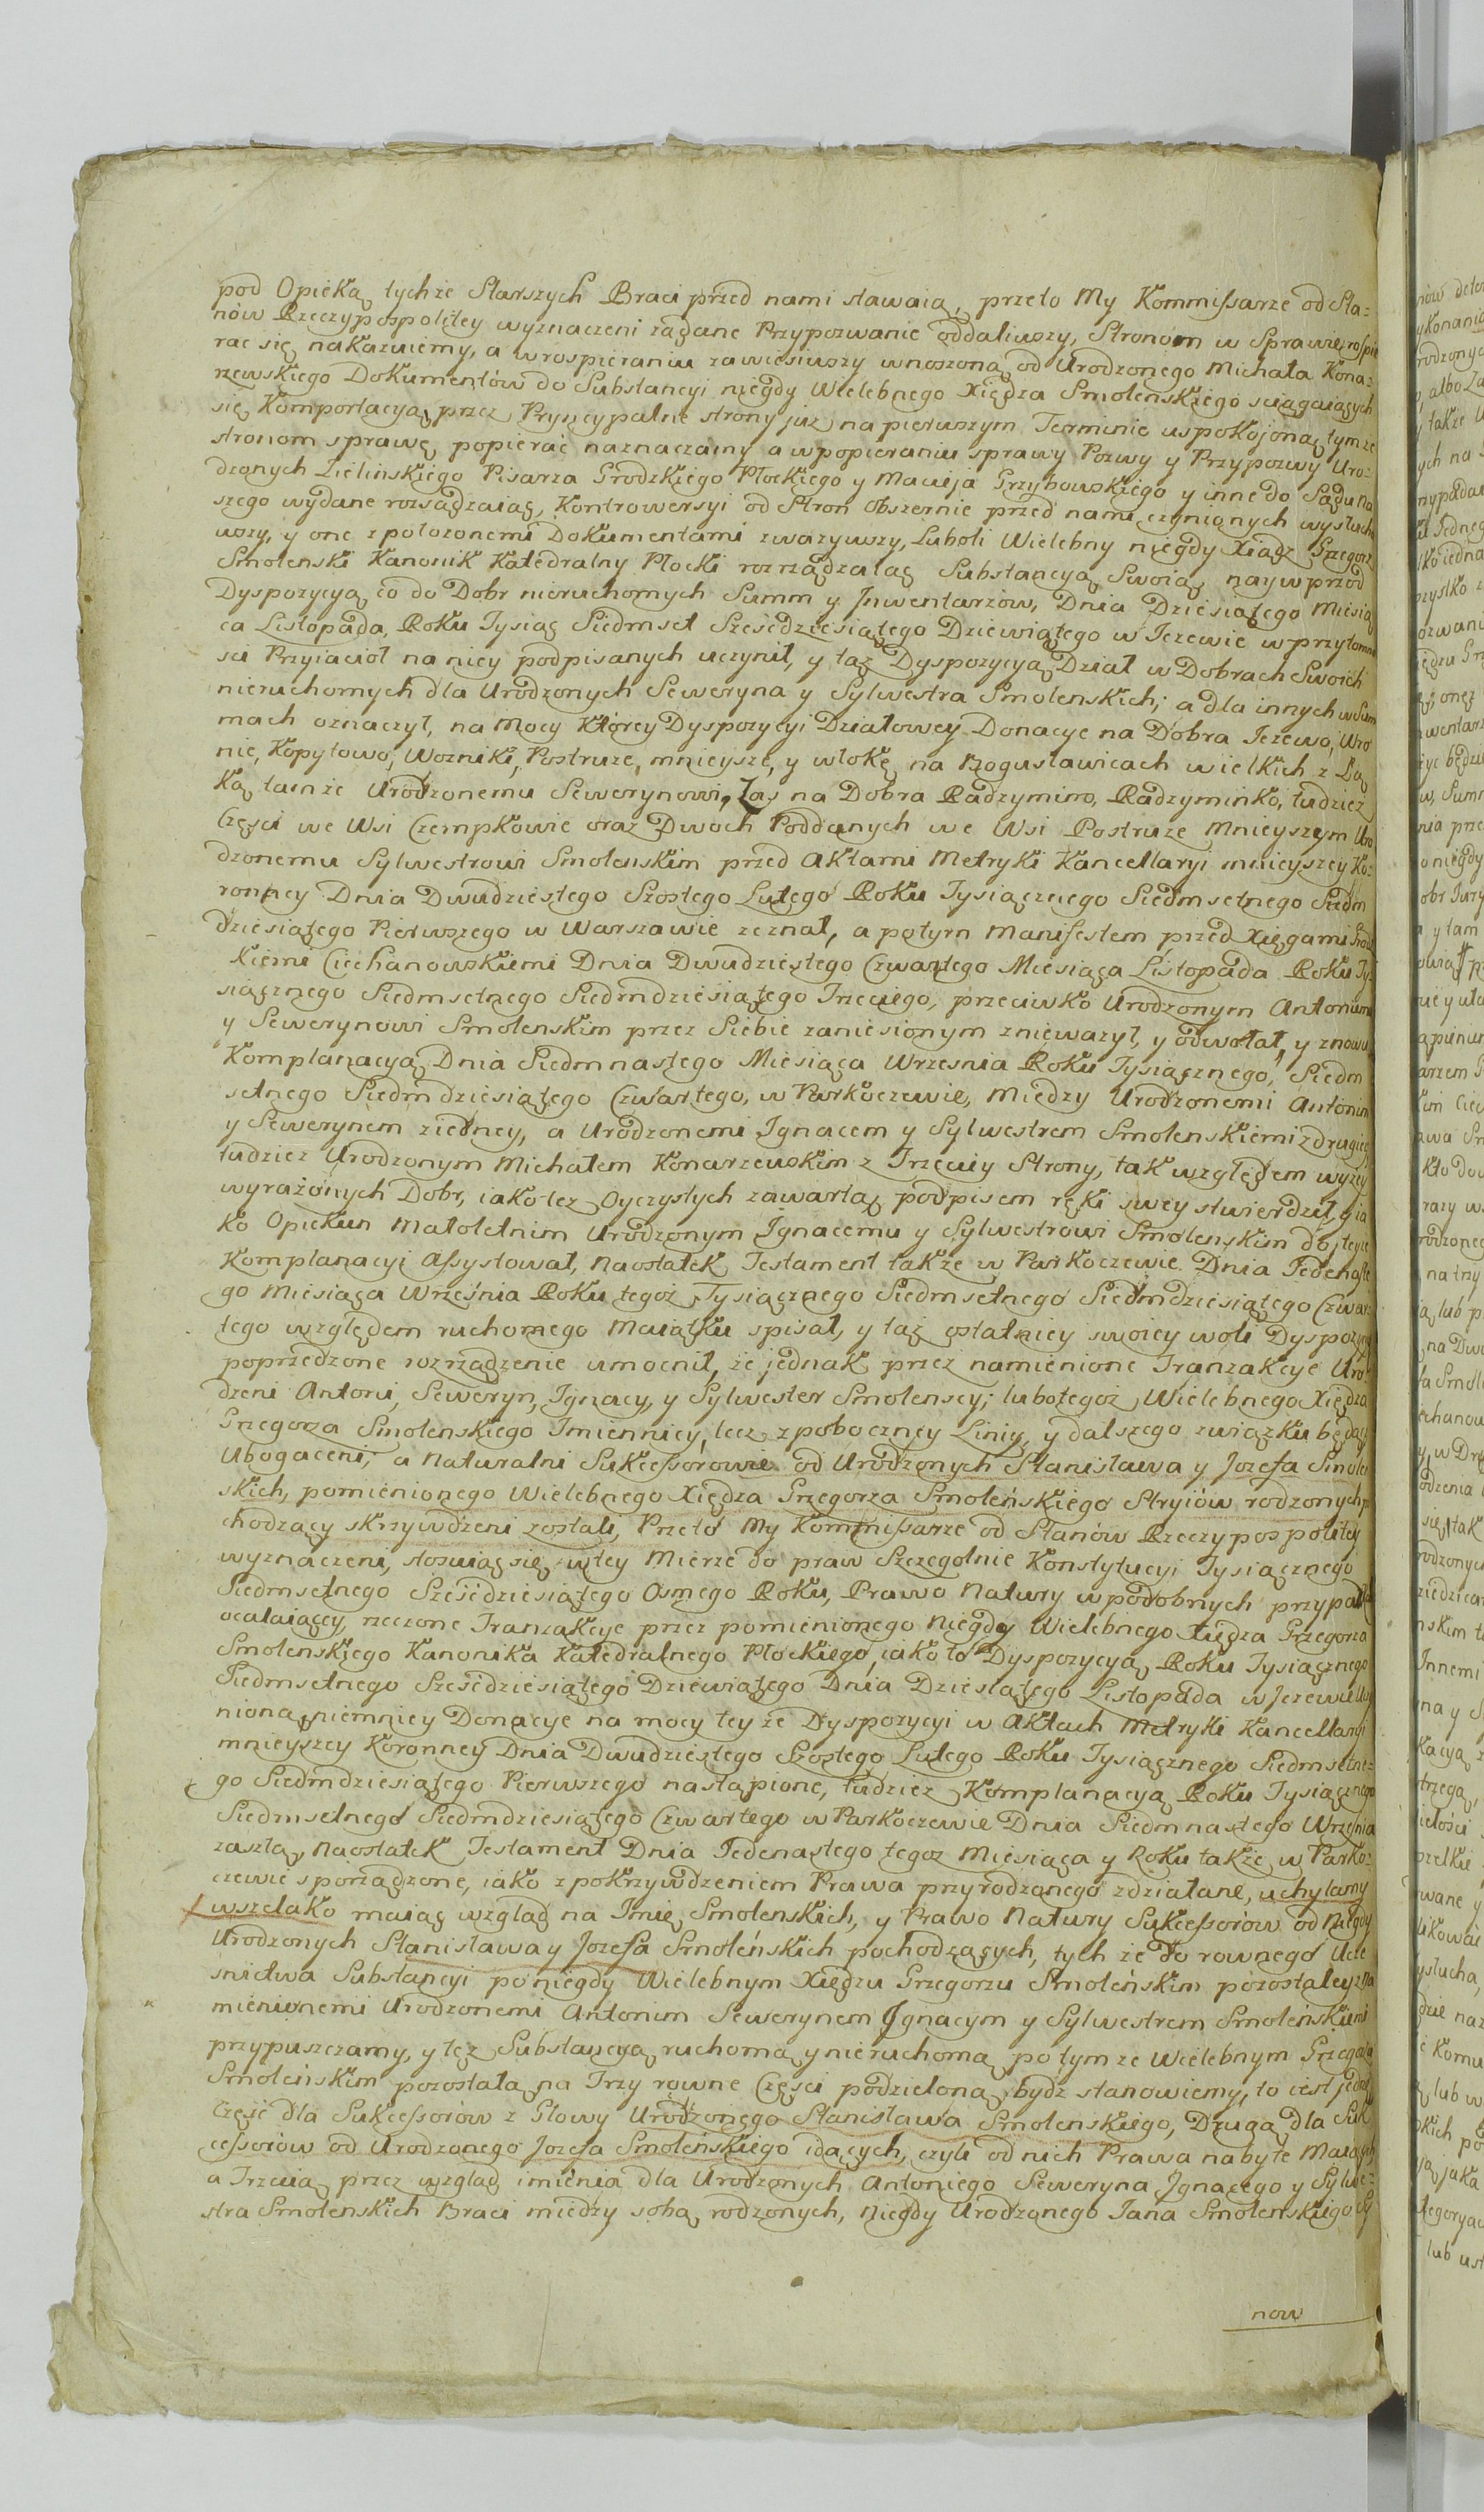 pod Opieką tychże Starszych Braci przed nami stawaią, przeto My Kommissarze od Sta=
nów Rzeczypospolitey wyznaczeni żądane Przypozwanie oddaliwszy, Stronom w Sprawie rospie
rac się nakazuiemy, a wrospieraniu zawiesiwszy wnoszoną od Urodzonego Michała Kona=
rzewskiego Dokumentów do Substancyi niegdy Wielebnego Xiędza Smolenskiego sciągaiących
się Komportacyą przez Pryncypalne strony już na pierwszym Terminie uspokojoną, tymże
stronom sprawę popierać naznaczamy a wpopieraniu sprawy Pozwy y Przypozwy Uro=
dzonych Zielinskiego Pisarza Grodzkiego Płockiego y Macieja Grzybowskiego y inne do Sądu Na
szego wydane rozsądzaiąc, Kontrowersyi od Stron obszernie przed nami czynionych wysłucha
wszy, y one z położonemi Dokumentami zwazywszy, Luboli Wielebny niegdy Xiądz Grzegorz
Smolenski Kanonik Katedralny Płocki rozrządzaiąc Substancyą Swoią naywprzód
Dyspozycyą co do Dobr nieruchomych Summ y Inwentarzów, Dnia Dziesiątego Miesią
ca Listopada, Roku Tysiąc Siedmset Sześćdziesiątego Dziewiątego w Jezewie wprzytomno
sci Przyiacioł na niey podpisanych uczynił, y tąż Dyspozycyą Dział w Dobrach Swoich
nieruchomych dla Urodzonych Seweryna y Sylwestra Smolenskich; a dla innych w Sum
mach oznaczył, na Mocy Którey Dyspozycyi Działowey Donacye na Dobra Jezewo, Wro
nie, Kopytowo, Wozniki, Postruze, mnieysze, y włokę na Bogusławicach wielkich z Łą
ką tamże Urodzonemu Sewerynowi, Zaś na Dobra Radzymino, Radzyminko, tudziez
Części we Wsi Czempkowie oraz Dwoch Poddanych we Wsi Postruze Mnieyszym Uro
dzonemu Sylwestrowi Smolenskim przed Aktami Metryki Kancellaryi mnieyszey Ko=
ronney Dnia Dwudziestego Szostego Lutego Roku Tysiącznego Siedmsetnego Siedm
dziesiątego Pierwszego w Warszawie zeznał, a potym Manifestem przed Xięgami Grodz
Kiemi Ciechanowskiemi Dnia Dwudziestego Czwartego Miesiąca Listopada Roku Ty=
siącznego Siedmsetnego Siedmdziesiątego Trzeciego, przeciwko Urodzonym Antoniemu
y Sewerynowi Smolenskim przez Siebie zaniesionym zniewazył, y odwołał, y znowu
Komplanacyą Dnia Siedmnastego Miesiąca Wrzesnia Roku Tysiącznego, Siedm
setnego Siedmdziesiątego Czwartego, w Parkoczewie, Miedzy Urodzonemi Antonim
y Sewerynem ziedney, a Urodzonemi Ignacem y Sylwestrem Smolenskiemi zdrugiey
tudziez Urodzonym Michałem Konarzewskim z Trzeciey Strony, tak względem wyzey
wyrażonych Dobr, iako tez Oyczystych zawartą podpisem ręki swey stwierdził y ia
ko Opiekun Małoletnim Urodzonym Ignacemu y Sylwestrowi Smolenskim do teyze
Komplanacyi Assystował, Naostatek Testament także w Parkoczewie Dnia Jedenaste
go Miesiąca Września Roku tegoż Tysiącznego Siedmsetnego Siedmdziesiątego Czwar
tego względem ruchomego Maiątku spisał, y tąż ostatniey swoiey woli Dyspozycyą
poprzedzone rozrządzenie umocnił, że jednak przez namienione Tranzakcye Uro=
dzeni Antoni, Seweryn, Ignacy, y Sylwester Smolenscy; lubo tegoż Wielebnego Xiędza
Grzegorza Smolenskiego Imiennicy, lecz z poboczney Linii, y dalszego związku będący
Ubogaceni, a Naturalni Sukcessorowie od Urodzonych Stanisława y Jozefa Smolen
skich, pomienionego Wielebnego Xiędza Grzegorza Smoleńskiego Stryiów rodzonych po
chodzący skrzywdzeni zostali, Przeto My Kommissarze od Stanów Rzeczypospolitey
wyznaczeni, stosuiąc się w tey Mierze do praw Szczegolnie Konstytucyi Tysiącznego
Siedmsetnego Sześćdziesiątego Osmego Roku, Prawo Natury wpodobnych przypadk
ocalaiącey, rzeczone Tranzakcye przez pomienionego Niegdy Wielebnego Xiędza Grzegorza
Smolenskiego Kanonika Katedralnego Płockiego, iako to Dyspozycyą Roku Tysiącznego
Siedmsetnego Sześćdziesiątego Dziewiątego Dnia Dziesiątego Listopada w Jezewie Uczy
nioną, niemniey Donacye na mocy teyże Dyspozycyi w Aktach Metryki Kancellaryi
mnieyszey Koronney Dnia Dwudziestego Szostego Lutego Roku Tysiącznego Siedmsetne=
go Siedmdziesiątego Pierwszego nastąpione, tudziez Komplanacyą Roku Tysiącznego
Siedmsetnego Siedmdziesiątego Czwartego w Parkoczewie Dnia Siedmnastego Wrzesnia
zaszłą, Naostatek Testament Dnia Jedenastego tegoz Miesiąca y Roku także w Parko=
czewie sporządzone, iako z pokrzywdzeniem Prawa przyrodzonego zdziałane, uchylamy
wszelako maiąc wzgląd na Imię Smolenskich, y Prawo Natury Sukcessorów od Niegdy
Urodzonych Stanisława y Jozefa Smoleńskich pochodzących, tych że do rownego Ucze
snictwa Substancyi po niegdy Wielebnym Xiędzu Grzegorzu Smoleńskim pozostałey z Na
mienionemi Urodzonemi Antonim Sewerynem Ignacym y Sylwestrem Smoleńskiemi
przypuszczamy, y tęż Substancyą ruchomą y nieruchomą po tymże Wielebnym Grzegorzu
Smoleńskim pozostałą na Trzy rowne Części podzieloną bydz stanowiemy, to iest jedną
Część dla Sukcessorów z Głowy Urodzonego Stanisława Smolenskiego, Drugą dla Suk
cessorów od Urodzonego Jozefa Smoleńskiego idących, czyli od nich Prawa nabyte Maiących
a Trzecią przez wzgląd imienia dla Urodzonych Antoniego Seweryna Ignacego y Sylwe=
stra Smolenskich Braci miedzy sobą rodzonych, Niegdy Urodzonego Jana Smolenskiego Sy
now